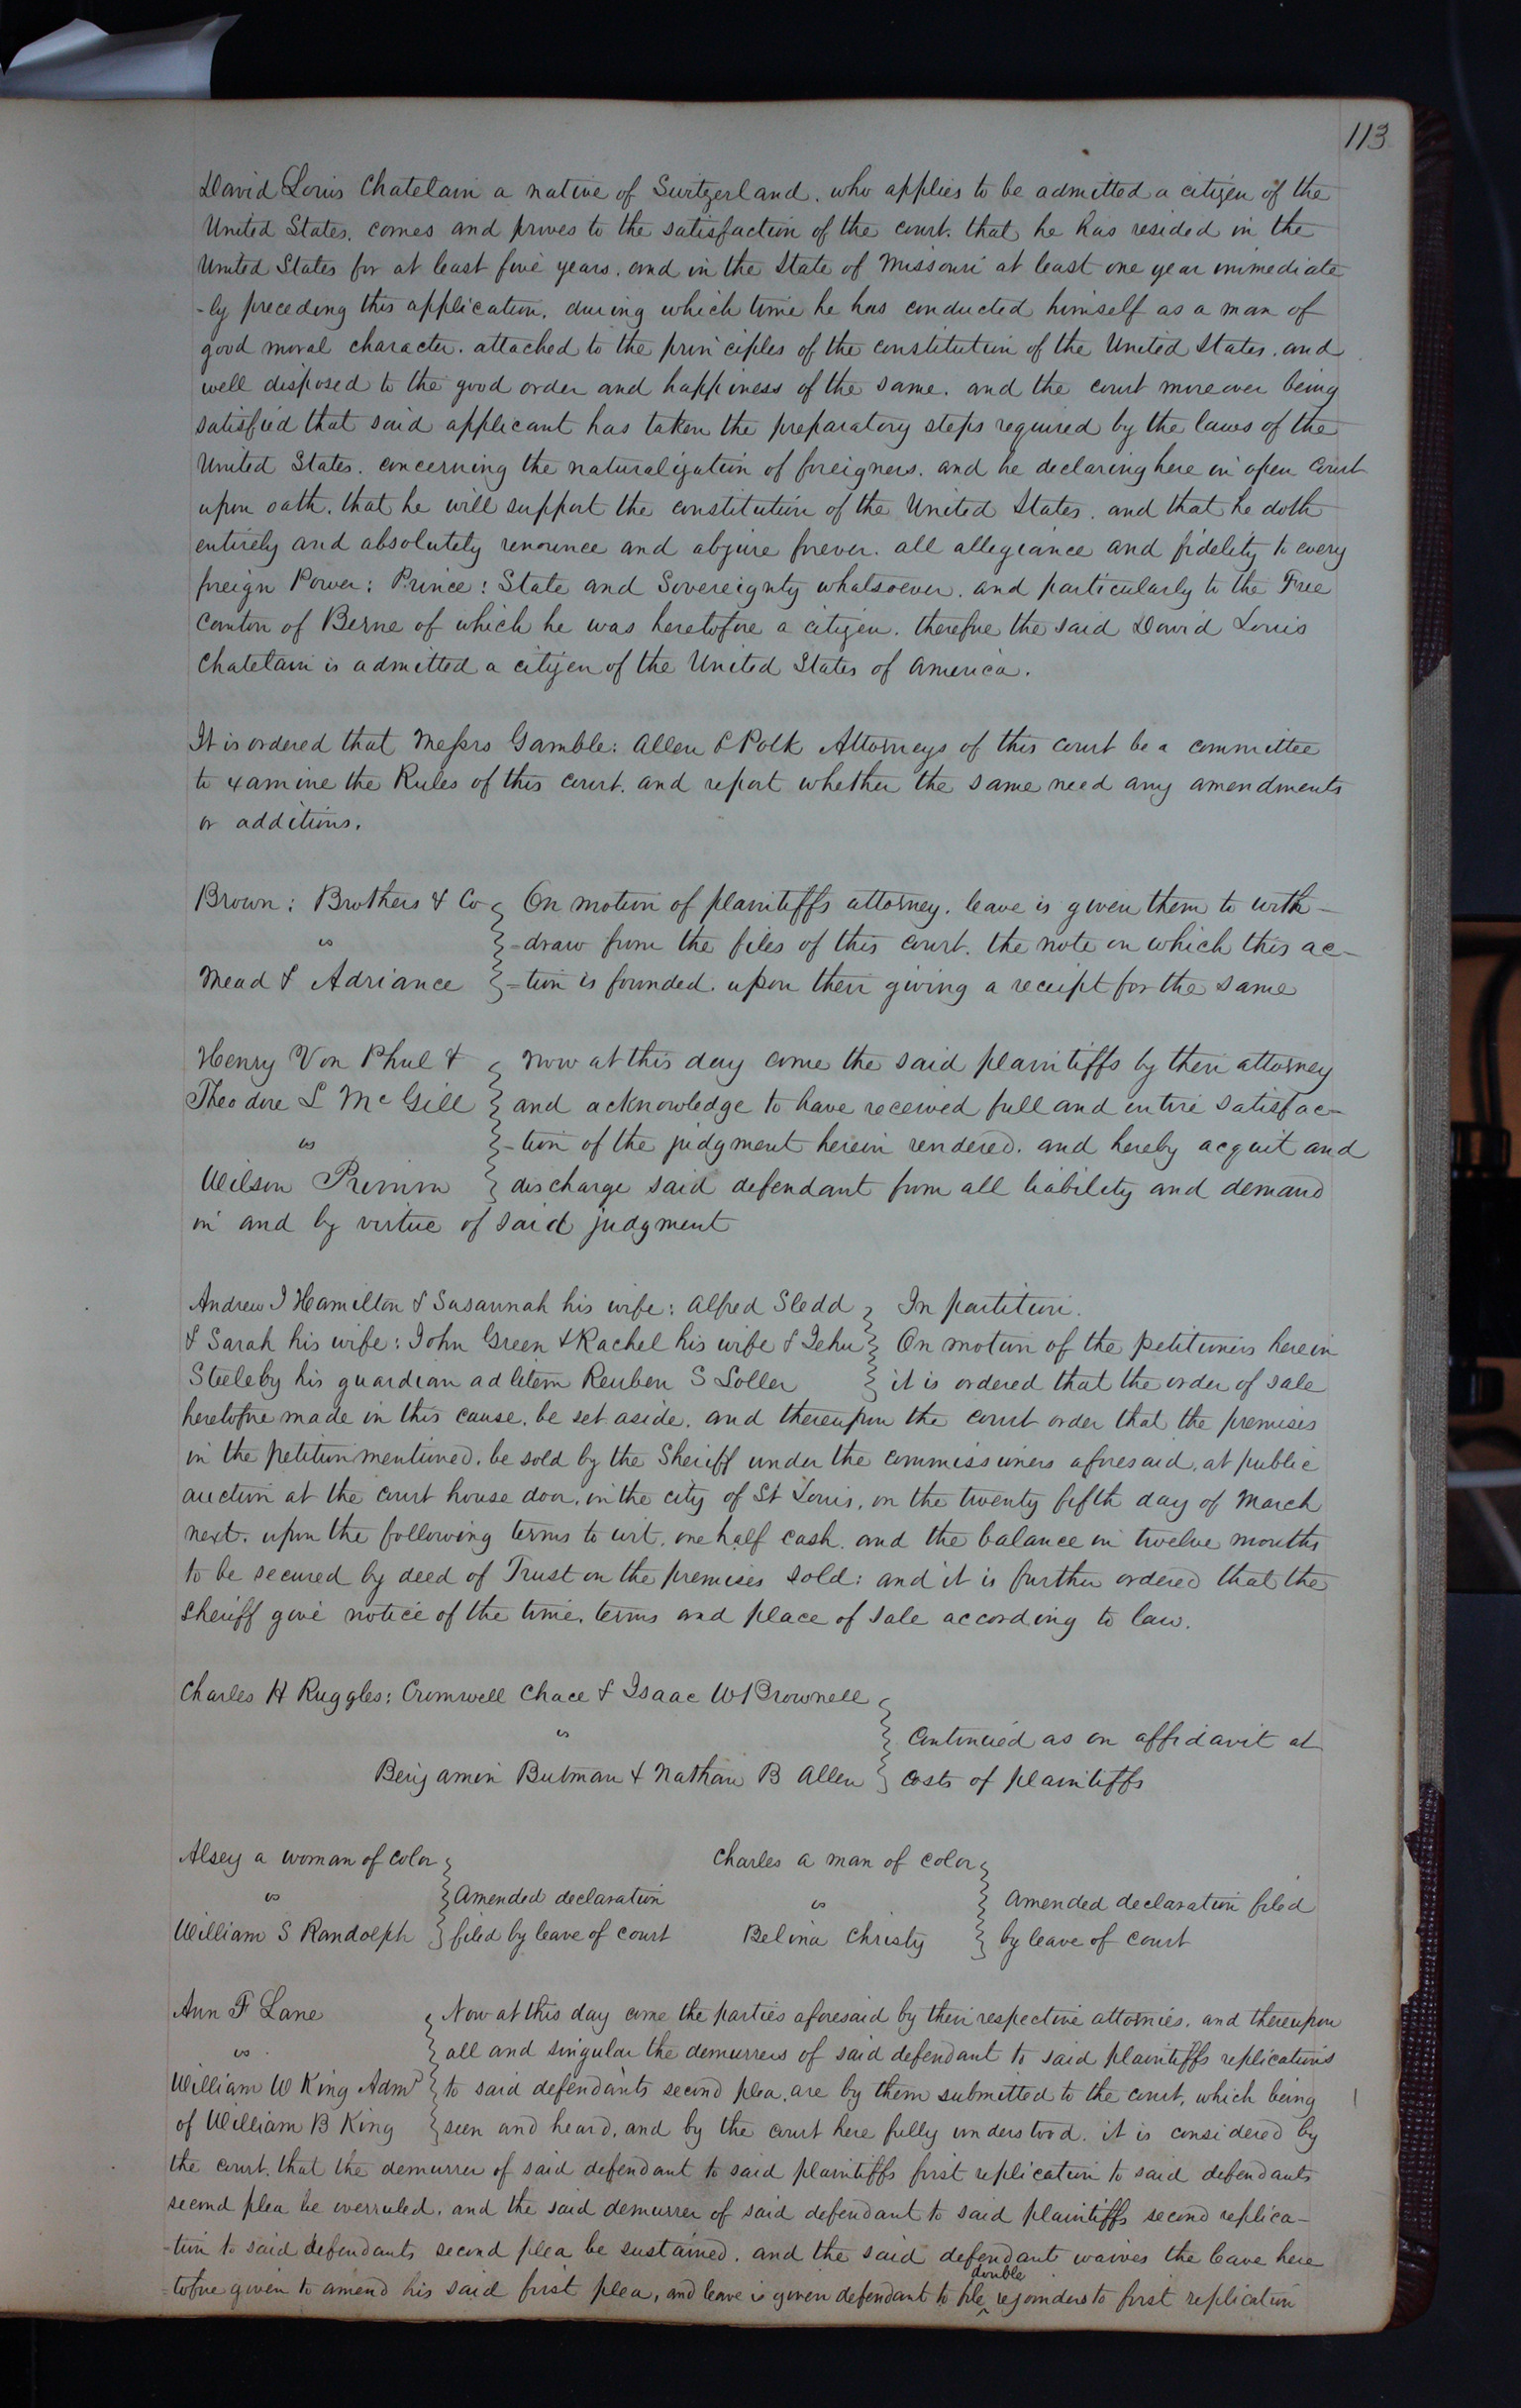 113
David Louis Chatelain a native of Switzerland. who applies to be admitted a citizen of the
United States. comes and proves to the satisfaction of the court. that he has resided in the
United States for at least five years. and in the State of Missouri at least one year immediate
-ly preceding this application. during which time he has conducted himself as a man of
good moral character. attached to the principles of the constitution of the United States. and
well disposed to the good order and happiness of the same. and the court moreover being
satisfied that said applicant has taken the preparatory steps required by the laws of the
United States. concerning the naturalization of foreigners. and he declaring here in open court
upon oath. that he will support the constitution of the United States. and that he doth
entirely and absolutely renounce and abjure forever. all allegiance and fidelity to every
foreign Power: Prince: State and Sovereignty whatsoever. and particularly to the Free
Canton of Berne of which he was heretofore a citizen. therefore the said David Louis
Chatelain is admitted a citizen of the United States of America.
It is ordered that Messrs Gamble: Allen & Polk Attorneys of this court be a committee
to examine the Rules of this court. and report whether the same need any amendments
or additions.
Brown: Brothers & Co On motion of plaintiffs attorney. leave is given them to with-
vs -draw from the files of this court. the note on which this ac-
Mead & Adriance -tion is founded. upon their giving a receipt for the same
Henry Von Phul & Now at this day come the said plaintiffs by their attorney
Theodore L McGill and acknowledge to have received full and entire satisfac-
vs -tion of the judgment herein rendered. and hereby acquit and
Wilson Primm discharge said defendant from all liability and demand
in and by virtue of said judgment
Andrew J Hamilton & Susannah his wife: Alfred Sledd In partition.
& Sarah his wife: John Green & Rachel his wife & Jehu On motion of the petitioners herein
Steele by his guardian ad litem Reuben S Soller it is ordered that the order of sale
heretofore made in this cause. be set aside. and thereupon the court order that the premises
in the petition mentioned. be sold by the Sheriff under the commissioners aforesaid. at public
auction at the court house door. in the city of St Louis, on the twenty fifth day of March
next. upon the following terms to wit. one half cash. and the balance in twelve months
to be secured by deed of Trust on the premises sold: and it is further ordered that the
sheriff give notice of the time. terms and place of sale according to law.
Charles H Ruggles: Cromwell Chace & Isaac W Brownell
vs Continued as on affidavit at
Benjamin Butman & Nathan B Allen costs of plaintiffs
Alsey a woman of color Charles a man of color
vs Amended declaration vs Amended declaration filed
William S Randolph filed by leave of court Belina Christy by leave of court
Ann F Lane Now at this day come the parties aforesaid by their respective attornies. and thereupon
vs all and singular the demurrers of said defendant to said plaintiffs replications
William W King Admr to said defendants second plea. are by them submitted to the court, which being
of William B King seen and heard. and by the court here fully understood. it is considered by
the court. that the demurrer of said defendant to said plaintiffs first replication to said defendants
second plea be overruled. and the said demurrer of said defendant to said plaintiffs second replica-
-tion to said defendants second plea be sustained. and the said defendant waives the leave here
-tofore given to amend his said first plea, and leave is given defendant to file double rejoinders to first replication